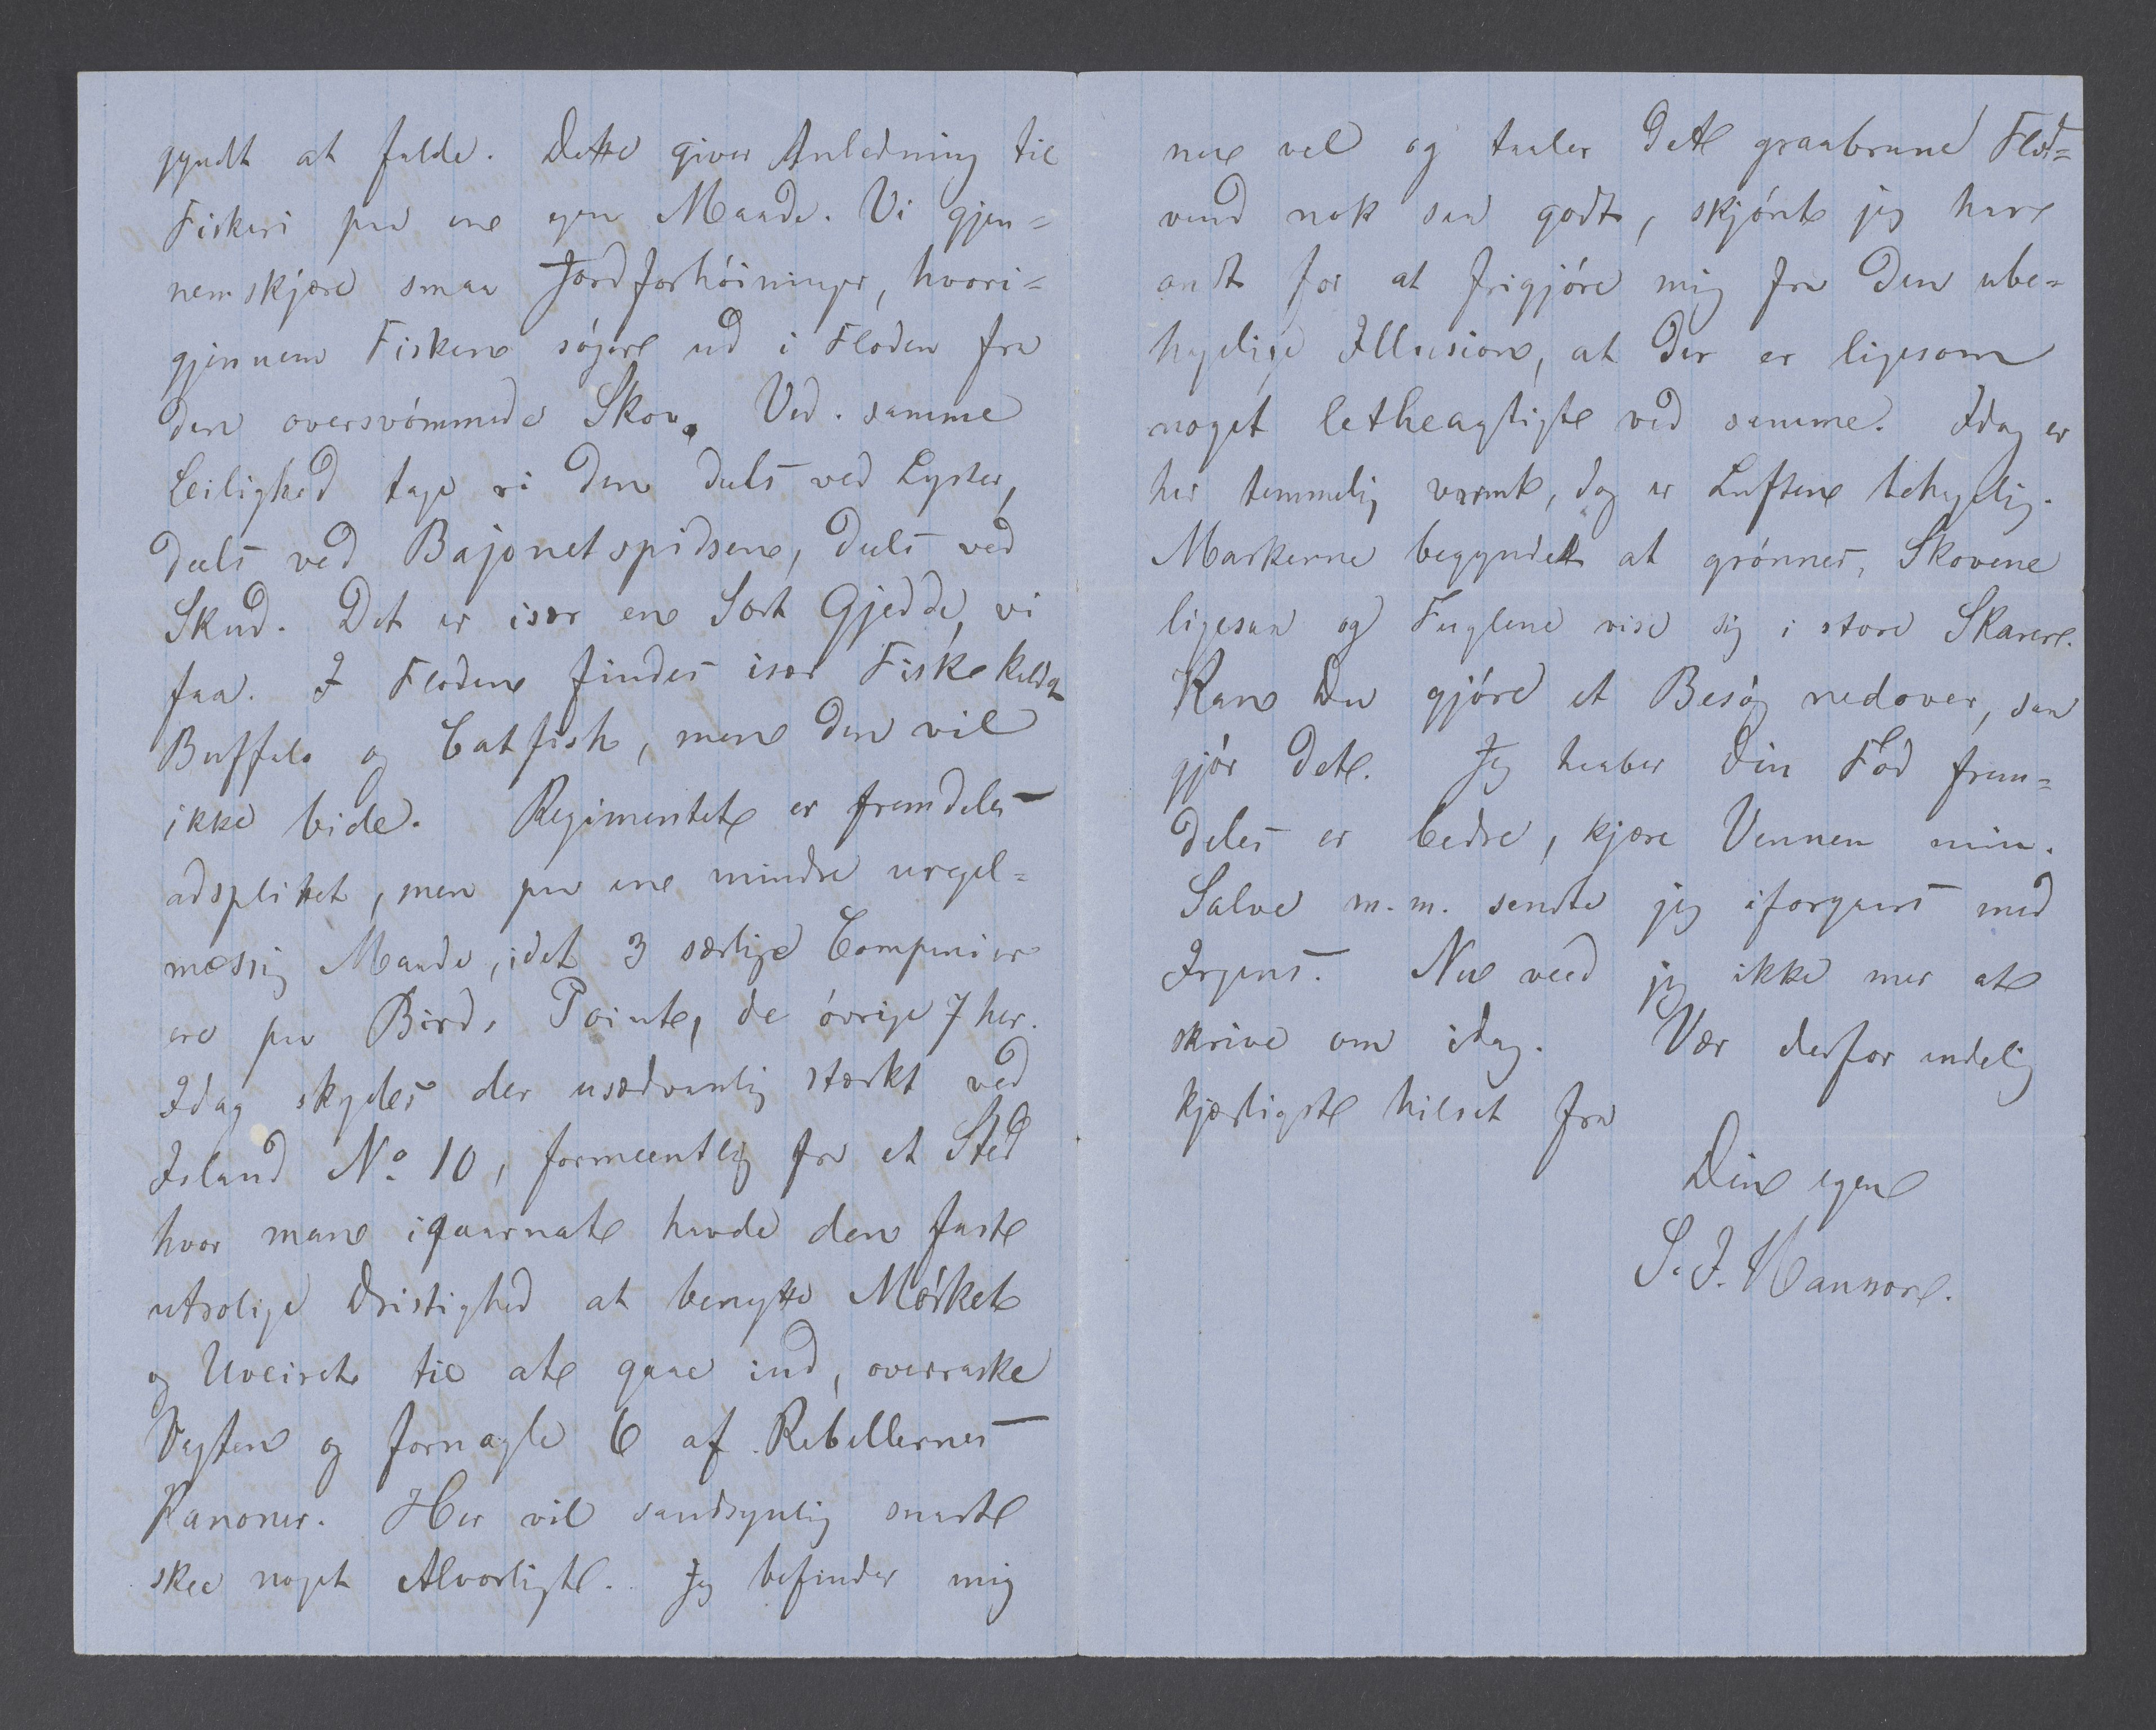 gyndt at falde. Dette giver Anledning til
Fiskeri paa en egen Maade. Vi gjen=
nemskjære smaa Jordforhóininger, hvori=
gjennem Fisken sóger ud i Floden fra
den oversvómmede Skov. Ved samme
Leilighed tage vi den dels ved Lyster,
dels ved Bajonetspidsen, dels ved
Skud. Det er især en Sort Gjedde, vi
faa. I Floden findes især Fiske kaldt
Buffalo og Catfish, men den vil
ikke bide. Regimentet er fremdeles
adsplittet, men paa en mindre uregel=
mæssig Maade, idet 3 særlige Compenier
ere paa Birds Point, de óvrige 7 her.
Idag skydes der usædvanlig stærkt ved
Island No. 10, formeentlig fra et Sted
hvor man igaarnat havde den fast
utrolige Dristighed at benytte Mórket
og Uveiret til at gaae ind, overraske
Vagten og fornagle 6 af Rebellernes
Kanoner. Her vil sandsynlig snart
skee noget Alvorligt. Jeg befinder mig
nu vel og taaler det graabrune Flod=
vand nok saa godt, skjónt jeg har
ondt for at frigjóre mig fra den ube=
hagelige Illusion, at der er ligesom
noget letheagtigt ved samme. Idag er
her temmelig varmt, dog er Luften behagelig.
Markerne begyndt at grónnes, Skovene
ligesaa og Fuglene vise sig i store Skarer.
Kan Du gjóre et Besóg nedover, saa
gjór det. Jeg haaber Din Fód frem=
deles er bedre, kjære Vennen min.
Salve m.m. sendte jeg iforgaars med
Irgens. Nu veed jeg ikke mer at
skrive om idag. Vær derfor endelig
kjærligst hilset fra
Din egen
S. J. Hansen.